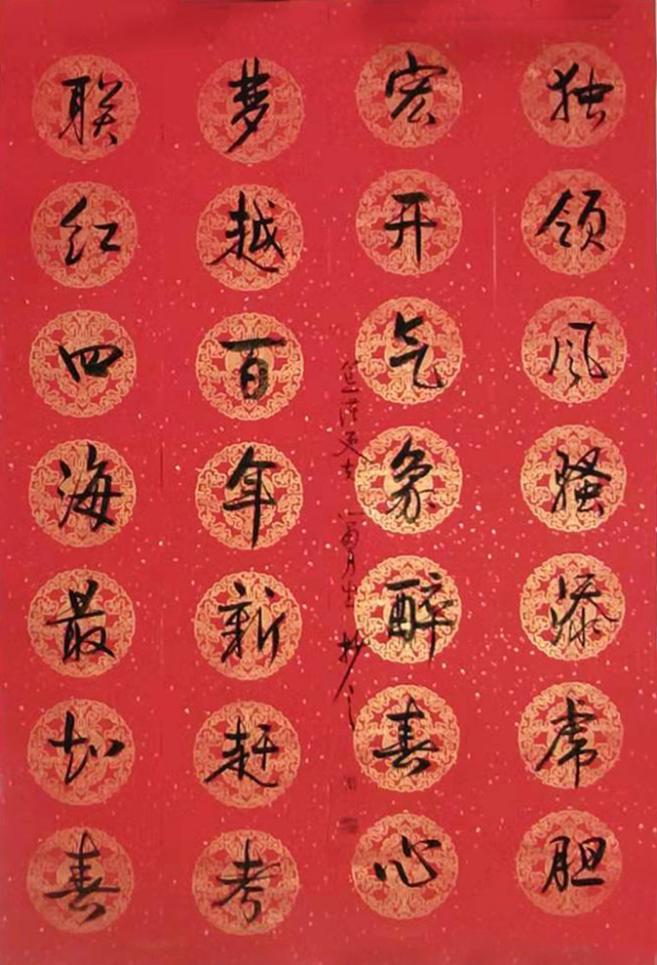 独领风骚添虎胆
宏开气象醉春心
梦越百年新赶考
联红四海最知春
抄之